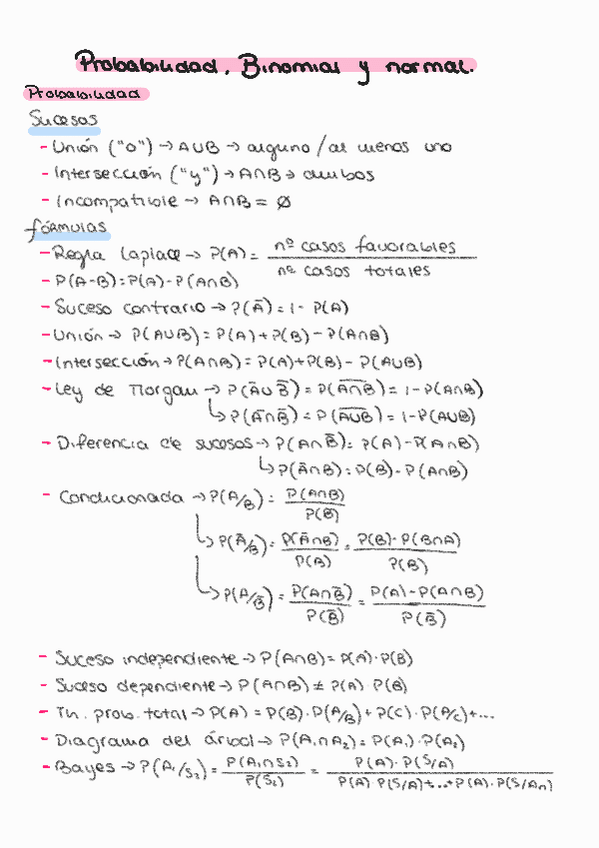 Probabilidad, Binomial y normal.
Probabilidad
Sucesos
- Unión ("o") → A∪B → alguno / al menos uno
- Intersección ("y") → A∩B → ambos
- Incompatible → A∩B = ∅
fórmulas
- Regla Laplace → P(A) = nº casos favorables / nº casos totales
- P(A-B) = P(A) - P(A∩B)
- Suceso contrario → P(Ā) = 1 - P(A)
- Unión → P(A∪B) = P(A) + P(B) - P(A∩B)
- Intersección → P(A∩B) = P(A) + P(B) - P(A∪B)
- Ley de Morgan → P(Ā∪B̅) = P(A̅∩̅B̅) = 1 - P(A∩B)
↳ P(Ā∩B̅) = P(A̅∪̅B̅) = 1 - P(A∪B)
- Diferencia de sucesos → P(A∩B̅) = P(A) - P(A∩B)
↳ P(Ā∩B) = P(B) - P(A∩B)
- Condicionada → P(A/B) = P(A∩B) / P(B)
↳ P(Ā/B) = P(Ā∩B) / P(B) = P(B) - P(B∩A) / P(B)
↳ P(A/B̅) = P(A∩B̅) / P(B̅) = P(A) - P(A∩B) / P(B̅)
- Suceso independiente → P(A∩B) = P(A) · P(B)
- Suceso dependiente → P(A∩B) ≠ P(A) · P(B)
- Th. prob. total → P(A) = P(B) · P(A/B) + P(C) · P(A/C) + ...
- Diagrama del árbol → P(A₁∩A₂) = P(A₁) · P(A₂)
- Bayes → P(A₁/S₂) = P(A₁∩S₂) / P(S₂) = P(A) · P(S/A) / P(A) · P(S/A) + ... + P(A) · P(S/An)